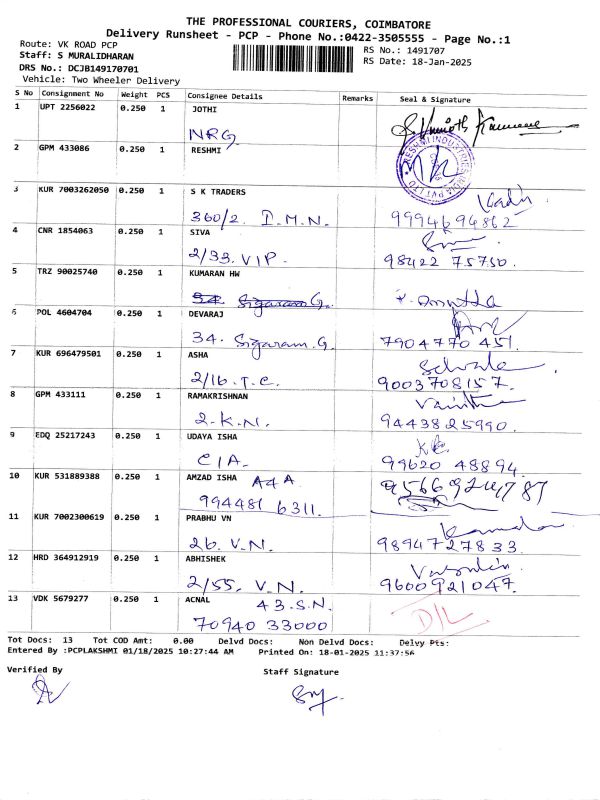 THE PROFESSIONAL COURIERS, COIMBATORE
Delivery Runsheet - PCP - Phone No.:0422-3505555 - Page No.:1
Route: VK ROAD PCP
Staff: S MURALIDHARAN
DRS No.: DCJB149170701
Vehicle: Two Wheeler Delivery
RS No.: 1491707
RS Date: 18-Jan-2025
S No Consignment No Weight PCS Consignee Details Remarks Seal & Signature
1 UPT 2256022 0.250 1 JOTHI
NRG
2 GPM 433086 0.250 1 RESHMI
3 KUR 7003262050 0.250 1 S K TRADERS
360/2. I.M.N. 9994694862
4 CNR 1854063 0.250 1 SIVA
2/33. VIP. 98422 75750.
5 TRZ 90025740 0.250 1 KUMARAN HW
Sigaram G.
6 POL 4604704 0.250 1 DEVARAJ
34. Sigaram. G. 7904770 451.
7 KUR 696479501 0.250 1 ASHA
2/16. T.C. 9003708157.
8 GPM 433111 0.250 1 RAMAKRISHNAN
2. K.N. 9443825990.
9 EDQ 25217243 0.250 1 UDAYA ISHA
C1A. 99620 48894.
10 KUR 531889388 0.250 1 AMZAD ISHA A4A
994481 6311.
11 KUR 7002300619 0.250 1 PRABHU VN
26. V.N. 9894727833.
12 HRD 364912919 0.250 1 ABHISHEK
2/55. V.N. 9600921047.
13 VDK 5679277 0.250 1 ACNAL 43.S.N.
70940 33000 D/L
Tot Docs: 13 Tot COD Amt: 0.00 Delvd Docs: Non Delvd Docs: Delvy Pts:
Entered By :PCPLAKSHMI 01/18/2025 10:27:44 AM Printed On: 18-01-2025 11:37:56
Verified By Staff Signature